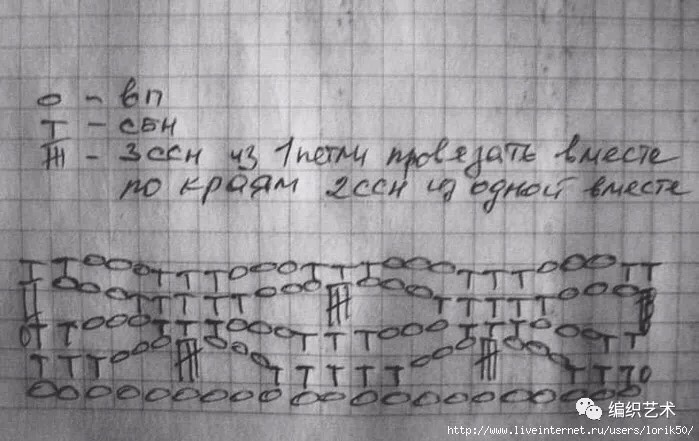 о - вп
т - сбн
- 3ссн из 1петли провязать вместе
по краям 2ссн из одной вместе
编织艺术
http://www.liveinternet.ru/users/lorik50/